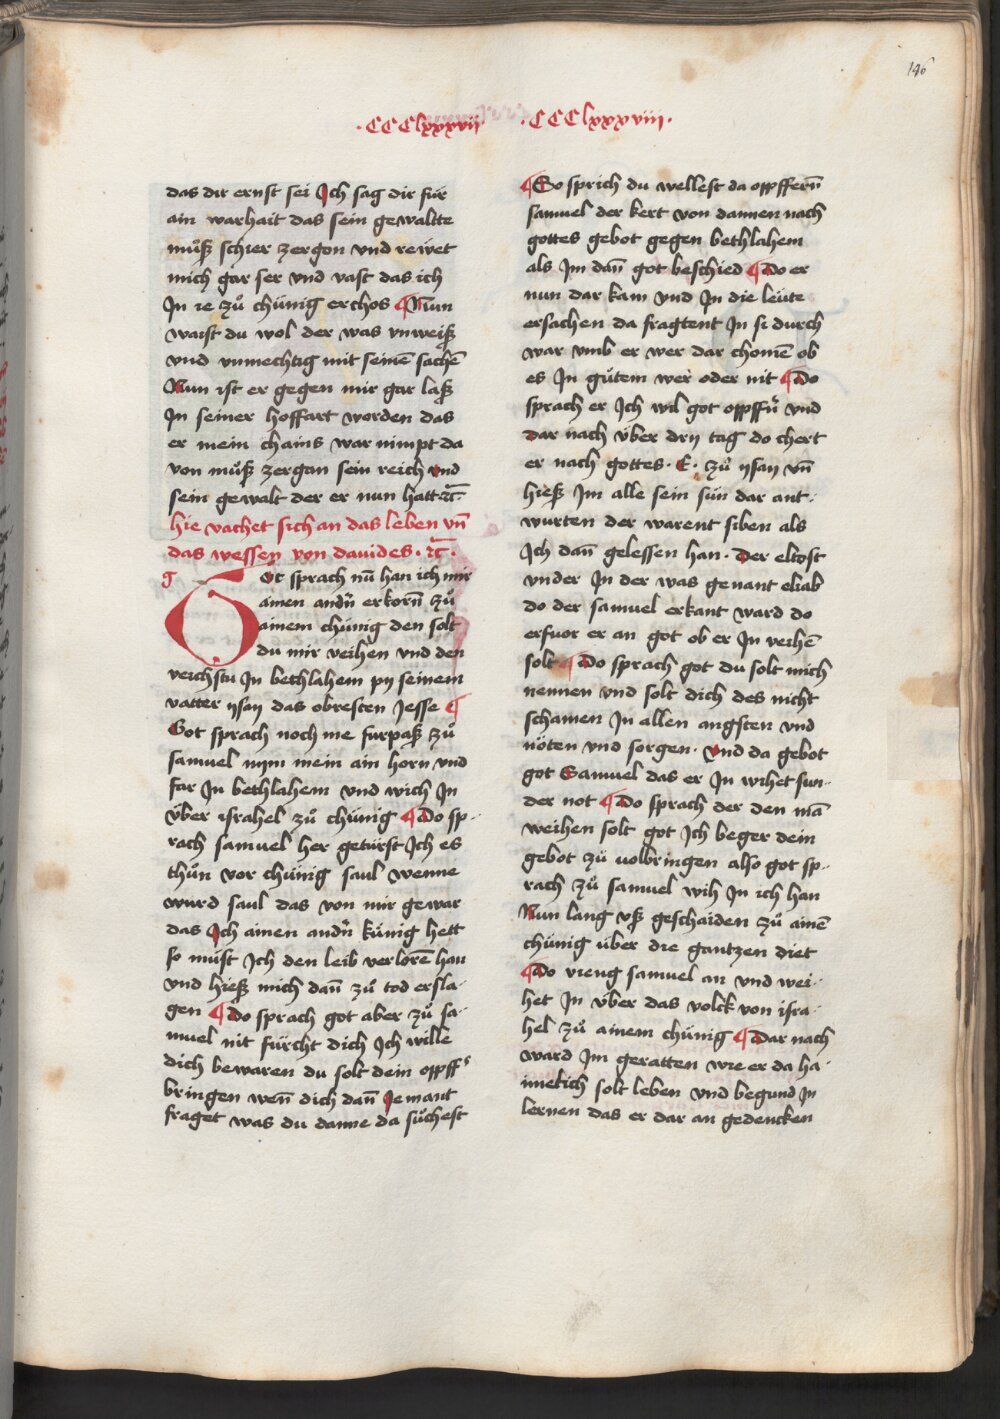 146
·CCClxxxvii·
·CCClxxxviii·
das dir ernst sei Ich sag dir für
ain warhait das sein gewaltte
müß schier zergon vnd rewet
mich gar ser vnd vast das ich
In ie zů chünig erchos ¶ Nun
waist du wol der was vnweiß
vnd vnmechtig mit seinē sachē
Nun ist er gegen mir gar laß
In seiner hoffart worden das
er mein chains war nimpt da
von můß zergan sein reich vnd
sein gewalt der er nun hatt ꝛc̄
hie vachet sich an das leben vn̄
das wessen von dauides · ꝛc̄ ·
g
Got sprach nū han ich mir
ainen andn̄ erkorn̄ zů
ainem chünig den solt
du mir veihen vnd den
veichstu In bethlahem pij seinem
vatter ysay das obresten Jesse ¶
Got sprach noch me furpaß zů
samuel nym mein ain horn vnd
far In bethlahem vnd wich In
über israhel zů chünig ¶ Do sp-
rach samuel her getürst Ich es
thůn vor chünig saul wenne
wurd saul das von mir gewar
das Ich ainen andn̄ künig hett
so müst Ich den leib verlorē han
vnd hieß mich dan̄ zů tod ersla-
gen ¶ Do sprach got aber zů sa-
muel nit fürcht dich Ich wille
dich bewaren du solt dein opff͛
bringen wen̄ dich dan̄ Jemant
fraget was du danne da sůchest
¶ So sprich du wellest da opffern̄
samuel der kert von dannen nach
gottes gebot gegen bethlahem
als Im dan̄ got beschied ¶ Do er
nun dar kam vnd In die leüte
ersachen da fragtent In si durch
war vmb er wer dar chomē ob
es In gütem wer oder nit ¶ Do
sprach er Ich wil got opffn̄ vnd
dar nach über drij tag do chert
er nach gottes · E · zů ysay vn̄
hieß Im alle sein sün dar ant-
wurten der warent siben als
Ich dan̄ gelessen han · Der eltost
vnder In der was genant eliab
do der samuel erkant ward do
erfuor er an got ob er In veihē
solt ¶ Do sprach got du solt mich
nennen vnd solt dich des nicht
schamen In allen angsten vnd
nöten vnd sorgen · Vnd da gebot
got Samuel das er In wihet sun-
der not ¶ Do sprach der den mā
weihen solt got Ich beger dein
gebot zů uolbringen also got sp-
rach zů samuel wih In ich han
Nun lang vß geschaiden zů ainē
chünig über die gantzen diet
¶ Do vieng samuel an vnd wei-
het In über das volck von isra-
hel zů ainem chünig ¶ Dar nach
ward Im geratten wie er da ha-
imelich solt leben vnd begund In
lernen das er dar an gedencken